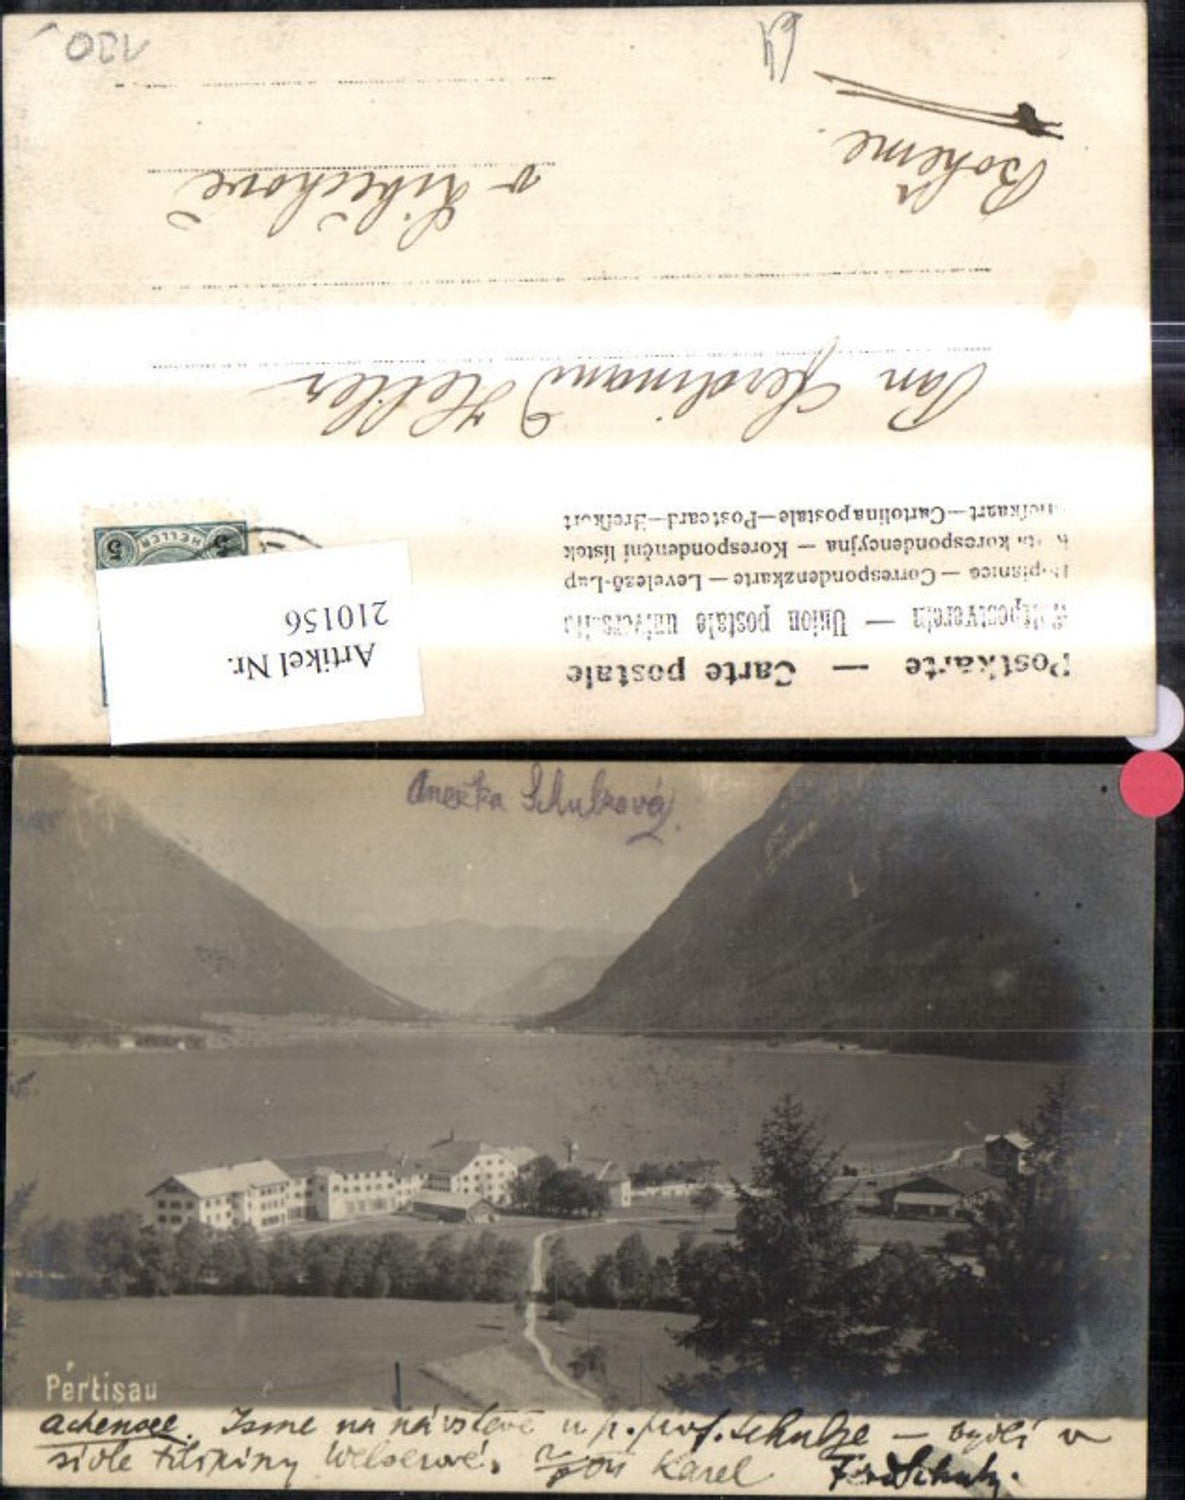 Postkarte — Carte postale
Weltpostverein — Union postale universelle
Dopisnice — Correspondenzkarte — Levelező-Lap
Karta korespondencyjna — Korespondenční lístek
Briefkaart—Cartolina postale—Postcard—Brefkort
Artikel Nr.
210156
5 HELLER 5
Pan Ferdinand Heller
v Liběchově
Bohême.
120
Anežka Schulzová
Pertisau
Achensee. Jsme na návštěvě u p. prof. Schulze — bydlí v
sídle Filipiny Welserové. Karel Ferd Schulz.